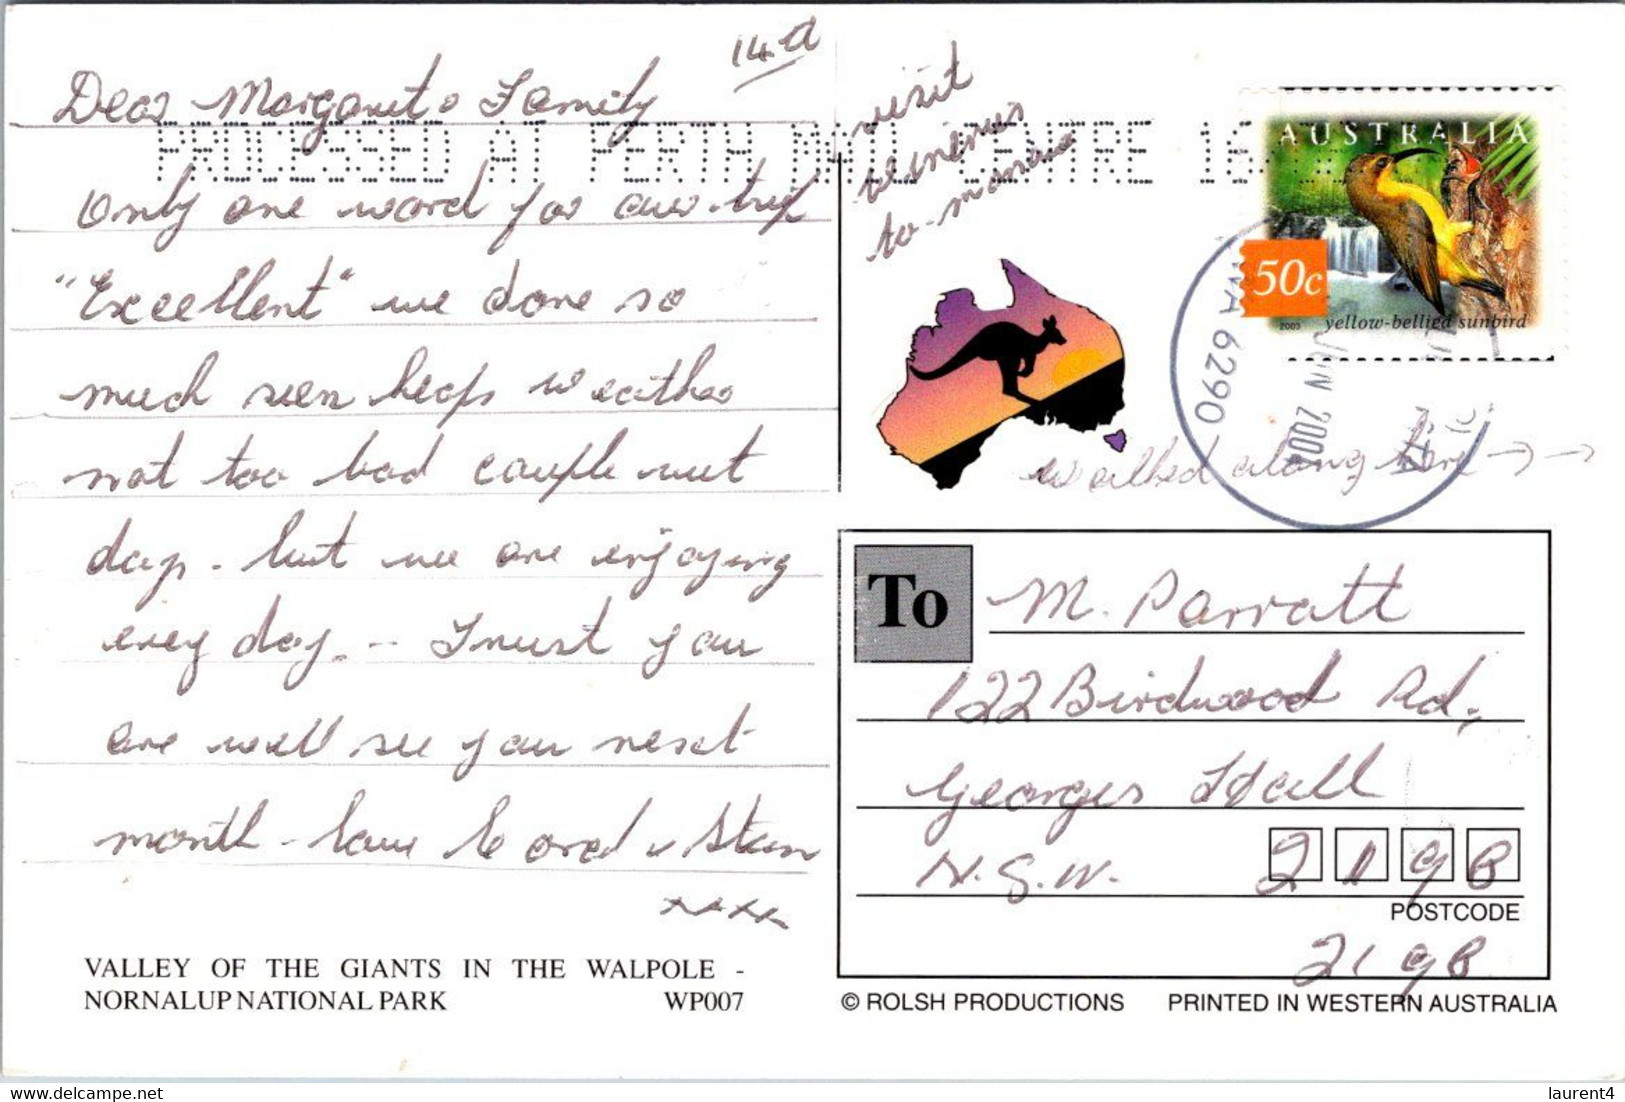 14th
Dear Margaret & Family
Only one word for our trip
"Excellent" we done so
much seen heaps weather
not too bad couple wet
days - but we are enjoying
every day. - Trust you
are well see you next
month - love & Stan
xxxx
VALLEY OF THE GIANTS IN THE WALPOLE -
NORNALUP NATIONAL PARK WP007
PROCESSED AT PERTH MAIL CENTRE 16
visit
wineries
to-morrow
AUSTRALIA
50c
2003 yellow-bellied sunbird
WA 6290
JUN 2004
walked along here → →
To M. Parratt
122 Birdwood Rd,
Georges Hall
N.S.W. 2198
POSTCODE
2198
© ROLSH PRODUCTIONS PRINTED IN WESTERN AUSTRALIA
laurent4